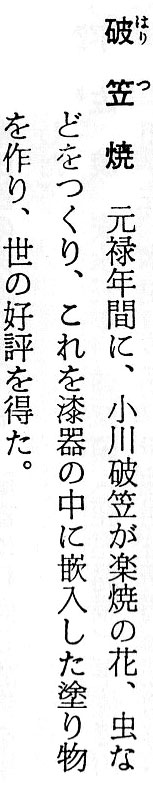 破笠焼 元禄年間に、小川破笠が楽焼の花、虫な
どをつくり、これを漆器の中に嵌入した塗り物
を作り、世の好評を得た。
はり
つ